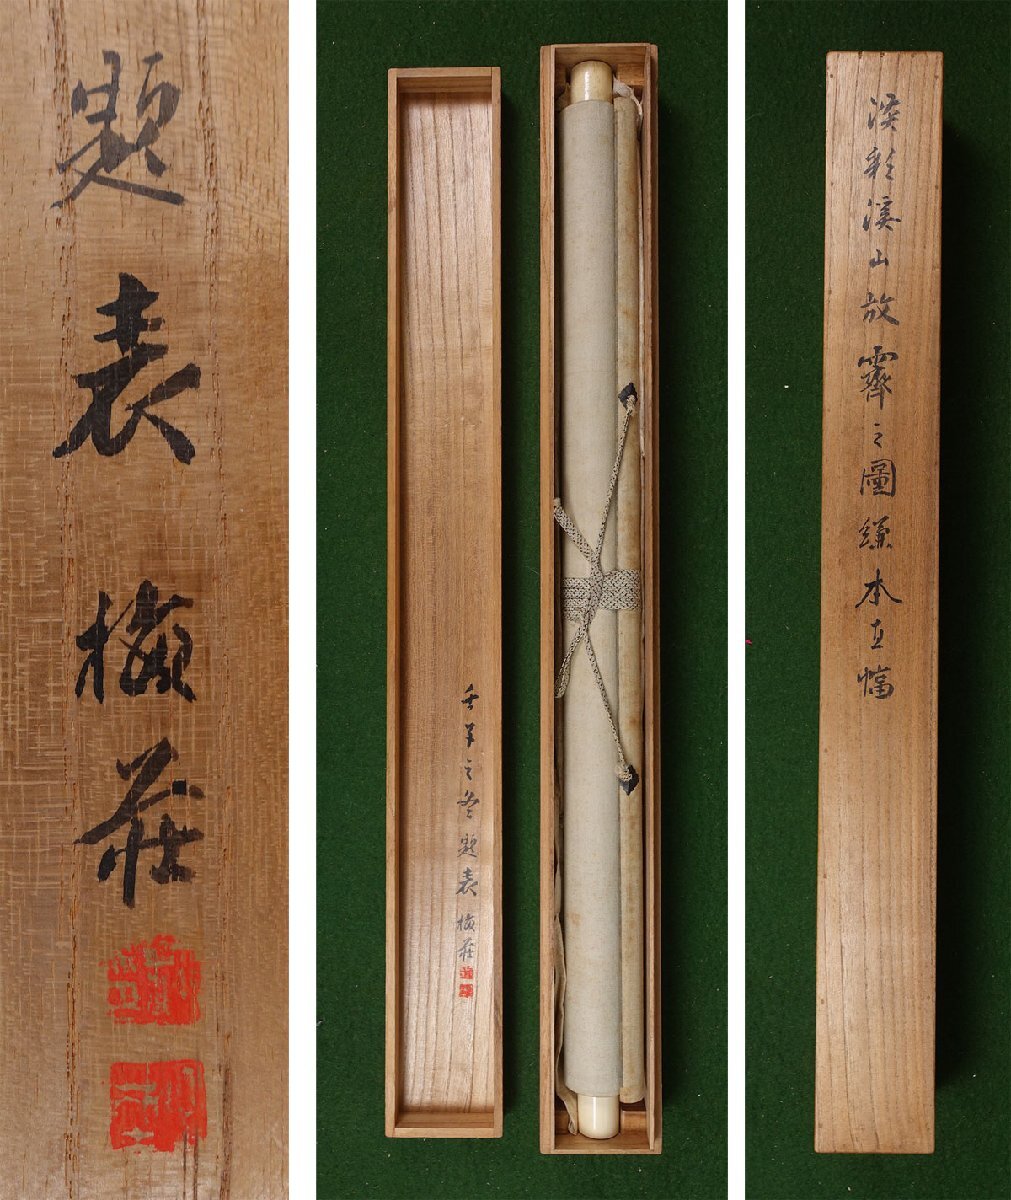 題表梅荘
壬午之冬題表梅荘
淡彩溪山放霽之圖絹本直幅